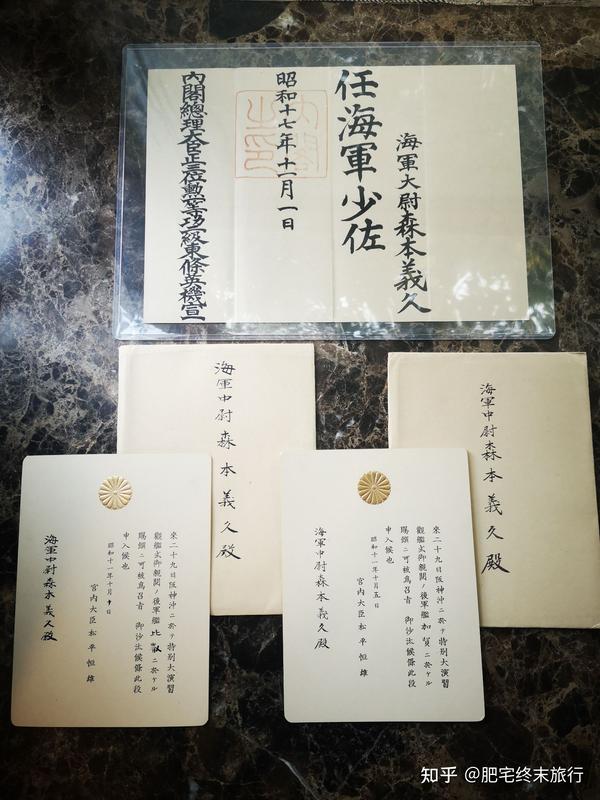 海軍大尉森本義久
任海軍少佐
昭和十七年十一月一日
內閣總理大臣正三位勳一等功二級東條英機宣
內閣之印
海軍中尉森本義久殿
海軍中尉森本義久殿
來二十九日阪神沖ニ於テ特別大演習
觀艦式御親閱ノ後軍艦比叡ニ於ケル
賜饌ニ可被爲召旨 御沙汰候條此段
申入候也
昭和十一年十月日
宮內大臣松平恒雄
海軍中尉森本義久殿
來二十九日阪神沖ニ於テ特別大演習
觀艦式御親閱ノ後軍艦加賀ニ於ケル
賜饌ニ可被爲召旨 御沙汰候條此段
申入候也
昭和十一年十月五日
宮內大臣松平恒雄
海軍中尉森本義久殿
知乎 @肥宅终末旅行